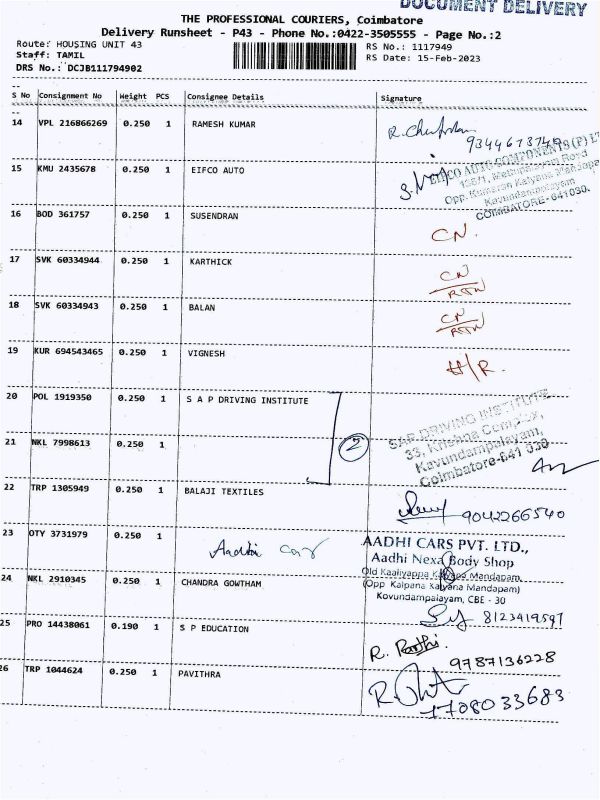 DOCUMENT DELIVERY
THE PROFESSIONAL COURIERS, Coimbatore
Delivery Runsheet - P43 - Phone No.:0422-3505555 - Page No.:2
Route: HOUSING UNIT 43
RS No.: 1117949
Staff: TAMIL
RS Date: 15-Feb-2023
DRS No.: DCJB111794902
S No Consignment No Weight PCS Consignee Details Signature
14 VPL 216866269 0.250 1 RAMESH KUMAR
9344673749
15 KMU 2435678 0.250 1 EIFCO AUTO
EIFCO AUTO COMPONENTS (P) LT
Opp. Kumaran Kalyana Mandapa
Kavundampalayam
COIMBATORE- 641030.
16 BOD 361757 0.250 1 SUSENDRAN
CN.
17 SVK 60334944 0.250 1 KARTHICK
CN
RTN
18 SVK 60334943 0.250 1 BALAN
CN
RTN
19 KUR 694543465 0.250 1 VIGNESH
H/R.
20 POL 1919350 0.250 1 S A P DRIVING INSTITUTE
21 NKL 7998613 0.250 1
2
SAP DRIVING INSTITUTE
33, Krishna Complex,
Kavundampalayam,
Coimbatore-641 030
22 TRP 1305949 0.250 1 BALAJI TEXTILES
9042266540
23 OTY 3731979 0.250 1 Aadhi Car
AADHI CARS PVT. LTD.,
Aadhi Nexa Body Shop
Old Kaaliyappa Kalyana Mandapam
(Opp Kalpana Kalyana Mandapam)
Kovundampalayam, CBE - 30
24 NKL 2910345 0.250 1 CHANDRA GOWTHAM
8123419597
25 PRO 14438061 0.190 1 S P EDUCATION
R.
9787136228
26 TRP 1044624 0.250 1 PAVITHRA
7708033683